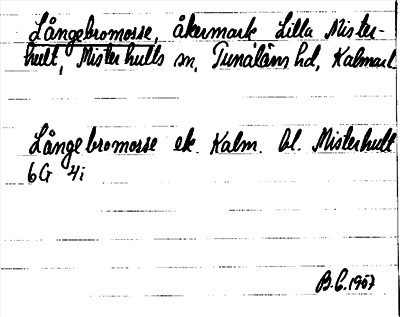 Långebromosse, åkermark Lilla Mister-
hult, Misterhults sn, Tunaläns hd, Kalmar l
Långebromosse ek. Kalm. bl. Misterhult
6G 4i
B.E. 1957